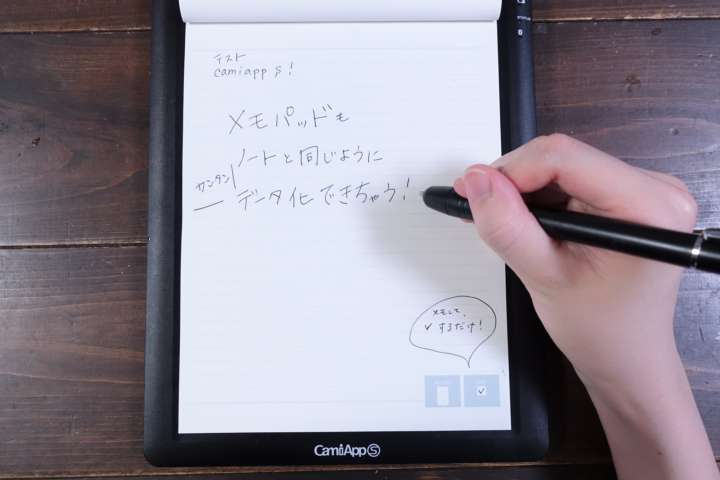 テスト
camiapp S!
メモパッドも
ノートと同じように
カンタン
データ化できちゃう!
メモして、
✓するだけ!
CamiApp S